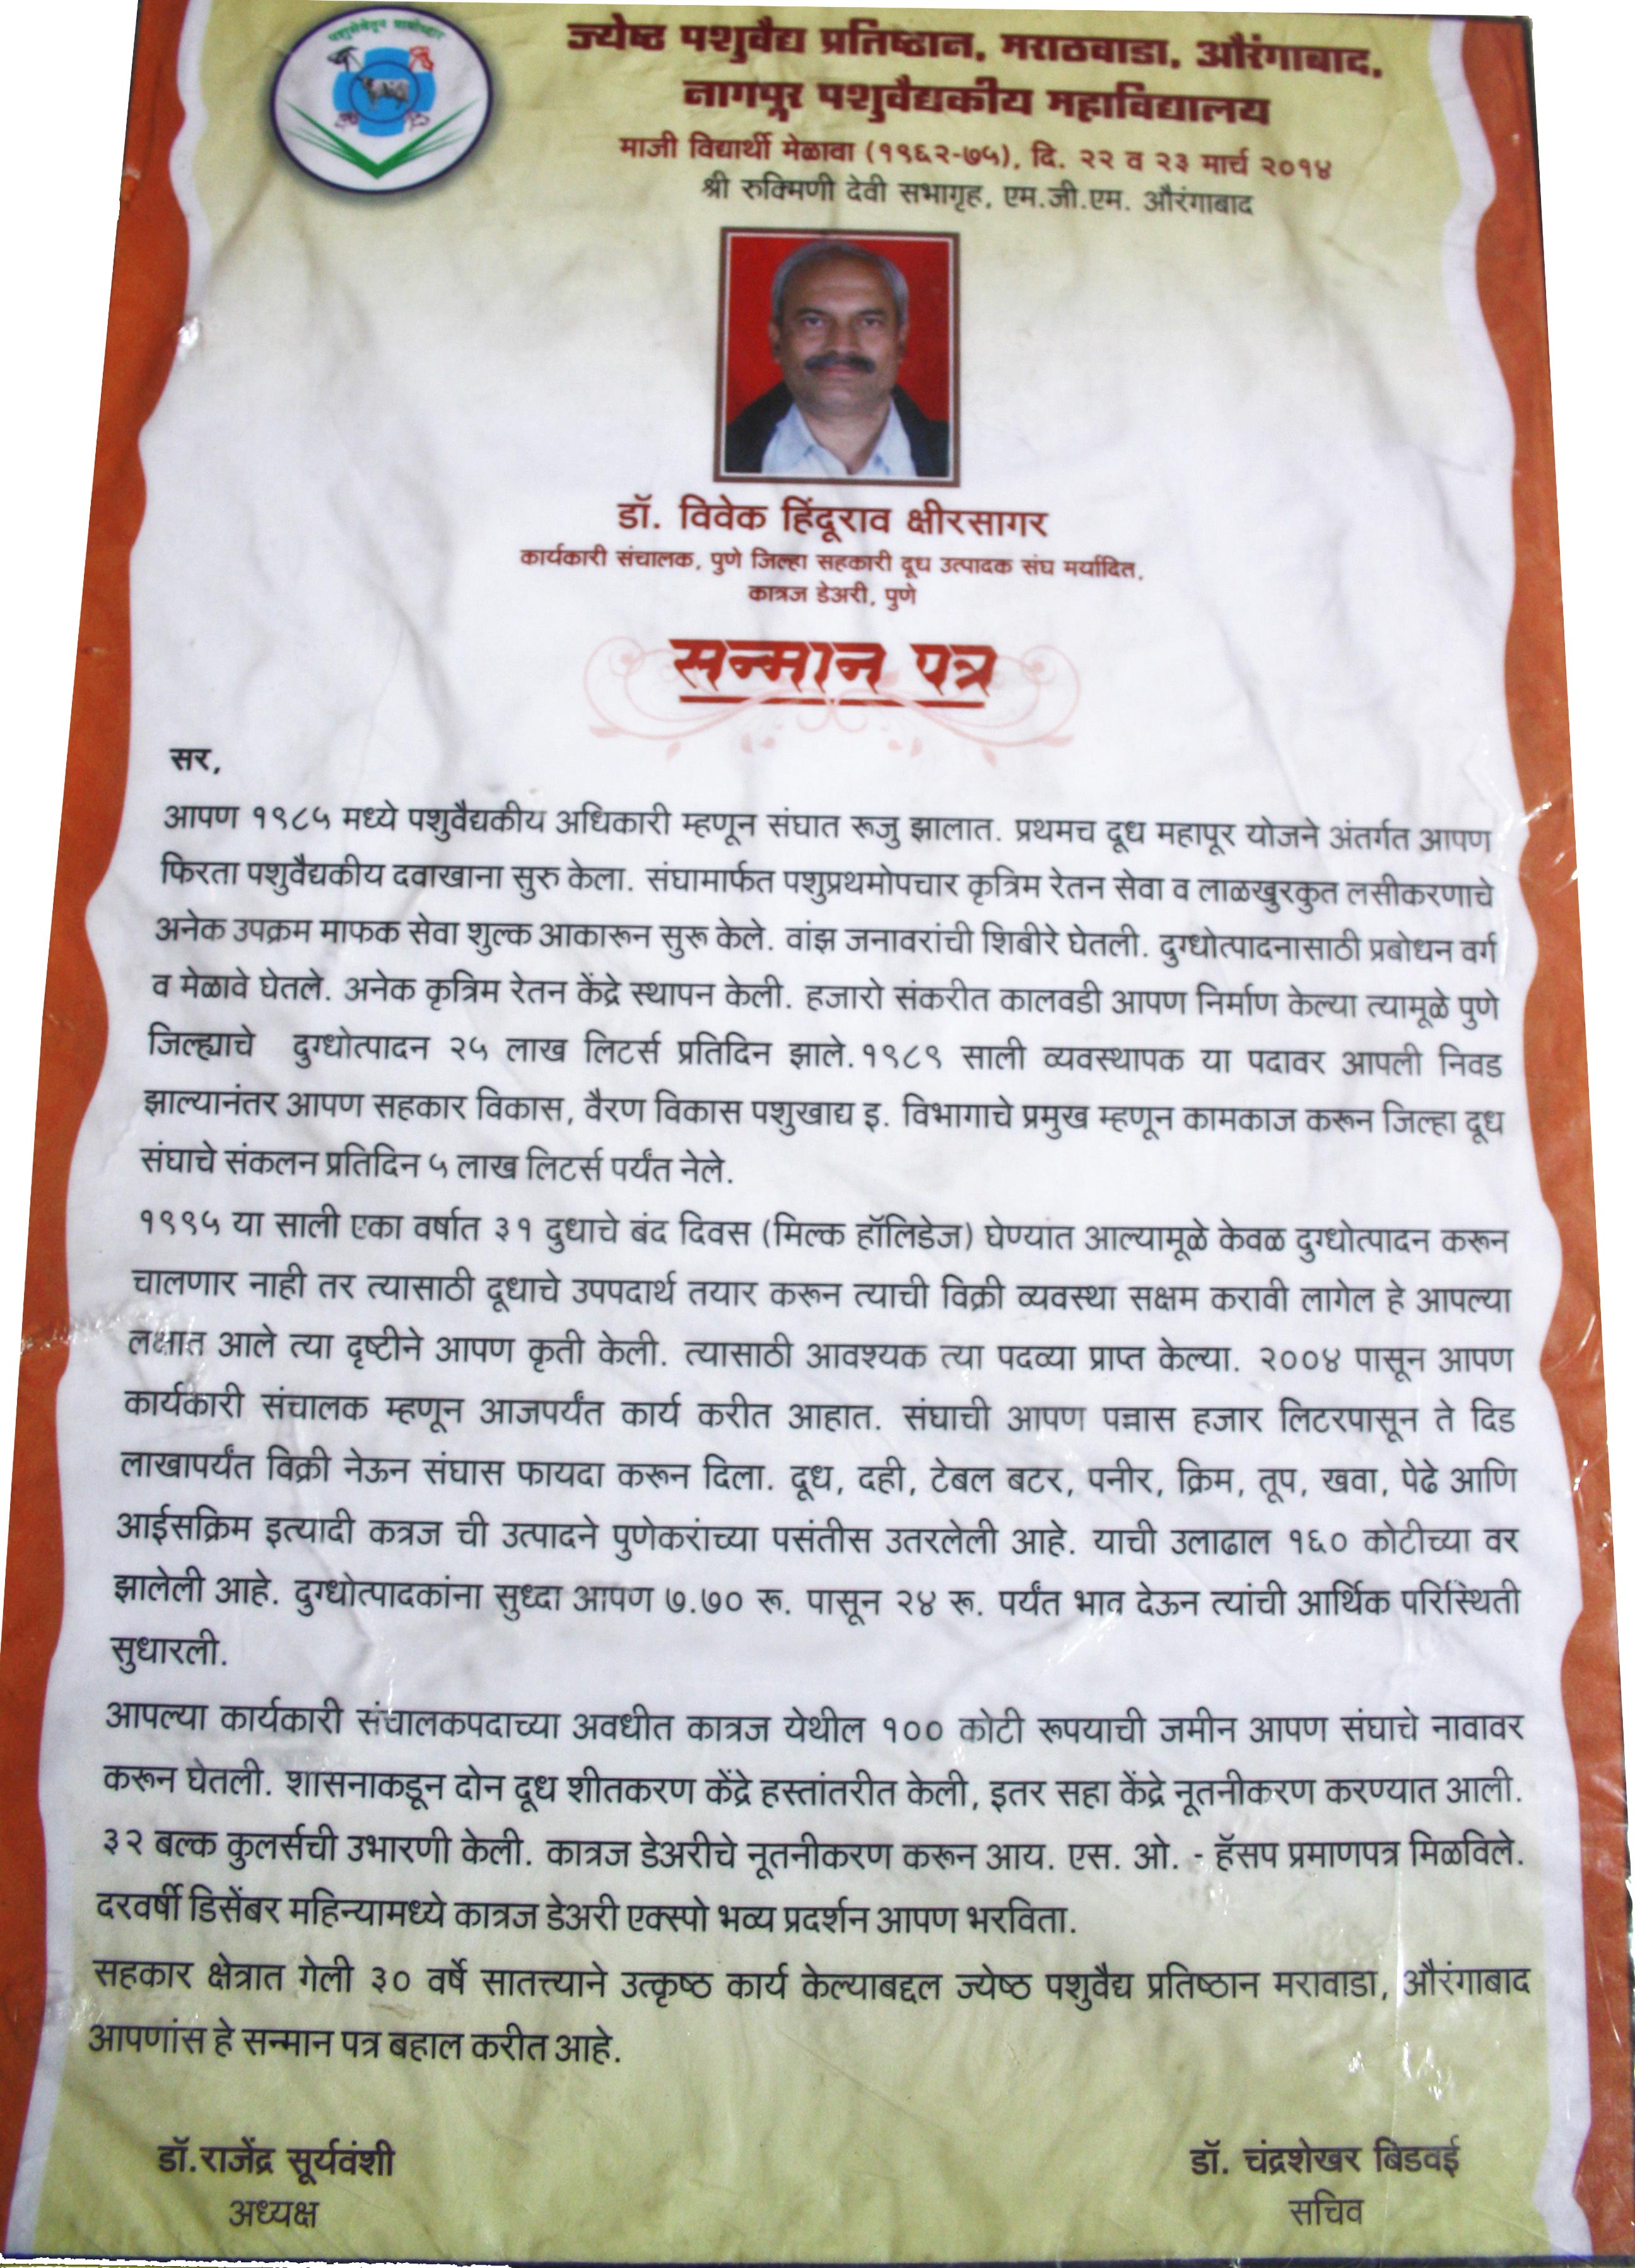 पशुसेवेतून ग्रामोध्दार
ज्येष्ठ पशुवैद्य प्रतिष्ठान, मराठवाडा, औरंगाबाद,
नागपूर पशुवैद्यकीय महाविद्यालय
माजी विद्यार्थी मेळावा (१९६२-७५), दि. २२ व २३ मार्च २०१४
श्री रुक्मिणी देवी सभागृह, एम.जी.एम. औरंगाबाद
डॉ. विवेक हिंदूराव क्षीरसागर
कार्यकारी संचालक, पुणे जिल्हा सहकारी दूध उत्पादक संघ मर्यादित,
कात्रज डेअरी, पुणे
सन्मान पत्र
सर,
आपण १९८५ मध्ये पशुवैद्यकीय अधिकारी म्हणून संघात रूजु झालात. प्रथमच दूध महापूर योजने अंतर्गत आपण
फिरता पशुवैद्यकीय दवाखाना सुरु केला. संघामार्फत पशुप्रथमोपचार कृत्रिम रेतन सेवा व लाळखुरकुत लसीकरणाचे
अनेक उपक्रम माफक सेवा शुल्क आकारून सुरू केले. वांझ जनावरांची शिबीरे घेतली. दुग्धोत्पादनासाठी प्रबोधन वर्ग
व मेळावे घेतले. अनेक कृत्रिम रेतन केंद्रे स्थापन केली. हजारो संकरीत कालवडी आपण निर्माण केल्या त्यामूळे पुणे
जिल्ह्याचे दुग्धोत्पादन २५ लाख लिटर्स प्रतिदिन झाले.१९८९ साली व्यवस्थापक या पदावर आपली निवड
झाल्यानंतर आपण सहकार विकास, वैरण विकास पशुखाद्य इ. विभागाचे प्रमुख म्हणून कामकाज करून जिल्हा दूध
संघाचे संकलन प्रतिदिन ५ लाख लिटर्स पर्यंत नेले.
१९९५ या साली एका वर्षात ३१ दुधाचे बंद दिवस (मिल्क हॉलिडेज) घेण्यात आल्यामूळे केवळ दुग्धोत्पादन करून
चालणार नाही तर त्यासाठी दूधाचे उपपदार्थ तयार करून त्याची विक्री व्यवस्था सक्षम करावी लागेल हे आपल्या
लक्षात आले त्या दृष्टीने आपण कृती केली. त्यासाठी आवश्यक त्या पदव्या प्राप्त केल्या. २००४ पासून आपण
कार्यकारी संचालक म्हणून आजपर्यंत कार्य करीत आहात. संघाची आपण पन्नास हजार लिटरपासून ते दिड
लाखापर्यंत विक्री नेऊन संघास फायदा करून दिला. दूध, दही, टेबल बटर, पनीर, क्रिम, तूप, खवा, पेढे आणि
आईसक्रिम इत्यादी कत्रज ची उत्पादने पुणेकरांच्या पसंतीस उतरलेली आहे. याची उलाढाल १६० कोटीच्या वर
झालेली आहे. दुग्धोत्पादकांना सुध्दा आपण ७.७० रू. पासून २४ रू. पर्यंत भाव देऊन त्यांची आर्थिक परिस्थिती
सुधारली.
आपल्या कार्यकारी संचालकपदाच्या अवधीत कात्रज येथील १०० कोटी रूपयाची जमीन आपण संघाचे नावावर
करून घेतली. शासनाकडून दोन दूध शीतकरण केंद्रे हस्तांतरीत केली, इतर सहा केंद्रे नूतनीकरण करण्यात आली.
३२ बल्क कुलर्सची उभारणी केली. कात्रज डेअरीचे नूतनीकरण करून आय. एस. ओ. - हॅसप प्रमाणपत्र मिळविले.
दरवर्षी डिसेंबर महिन्यामध्ये कात्रज डेअरी एक्स्पो भव्य प्रदर्शन आपण भरविता.
सहकार क्षेत्रात गेली ३० वर्षे सातत्त्याने उत्कृष्ठ कार्य केल्याबद्दल ज्येष्ठ पशुवैद्य प्रतिष्ठान मरावाडा, औरंगाबाद
आपणांस हे सन्मान पत्र बहाल करीत आहे.
डॉ.राजेंद्र सूर्यवंशी
अध्यक्ष
डॉ. चंद्रशेखर बिडवई
सचिव